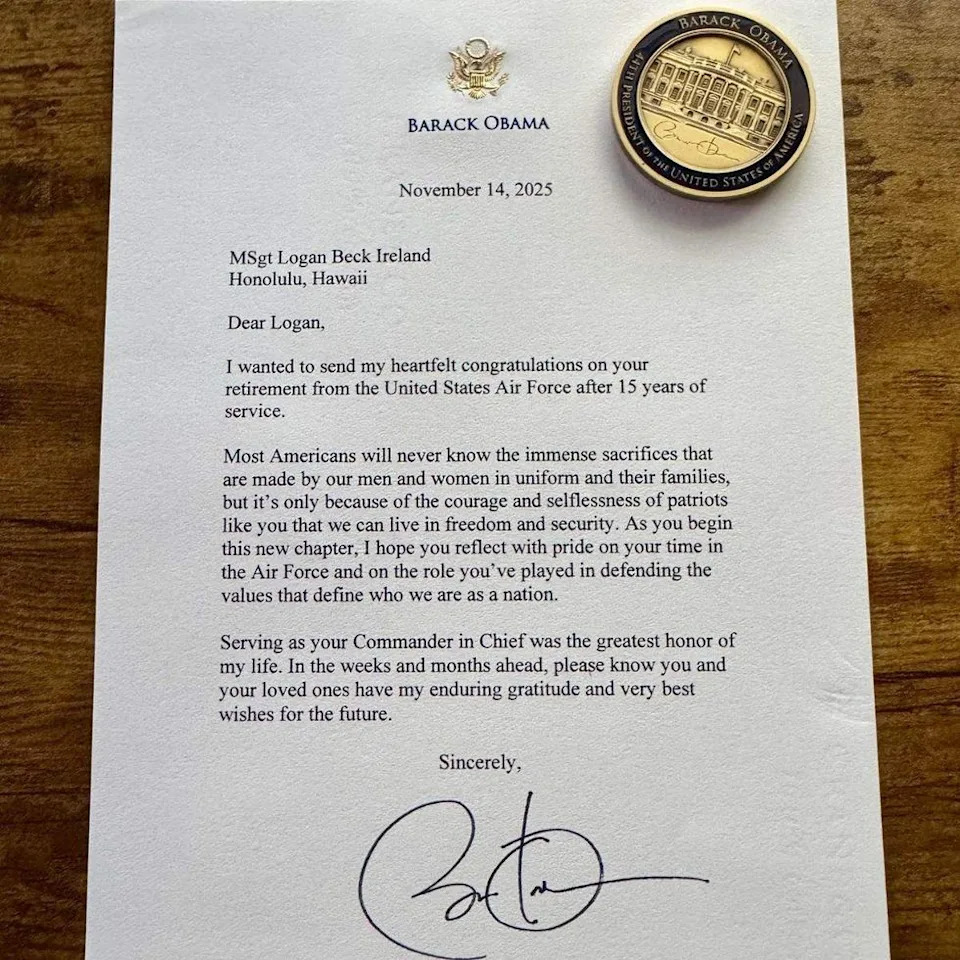 BARACK OBAMA
44TH PRESIDENT OF THE UNITED STATES OF AMERICA
BARACK OBAMA
November 14, 2025
MSgt Logan Beck Ireland
Honolulu, Hawaii
Dear Logan,
I wanted to send my heartfelt congratulations on your
retirement from the United States Air Force after 15 years of
service.
Most Americans will never know the immense sacrifices that
are made by our men and women in uniform and their families,
but it’s only because of the courage and selflessness of patriots
like you that we can live in freedom and security. As you begin
this new chapter, I hope you reflect with pride on your time in
the Air Force and on the role you’ve played in defending the
values that define who we are as a nation.
Serving as your Commander in Chief was the greatest honor of
my life. In the weeks and months ahead, please know you and
your loved ones have my enduring gratitude and very best
wishes for the future.
Sincerely,